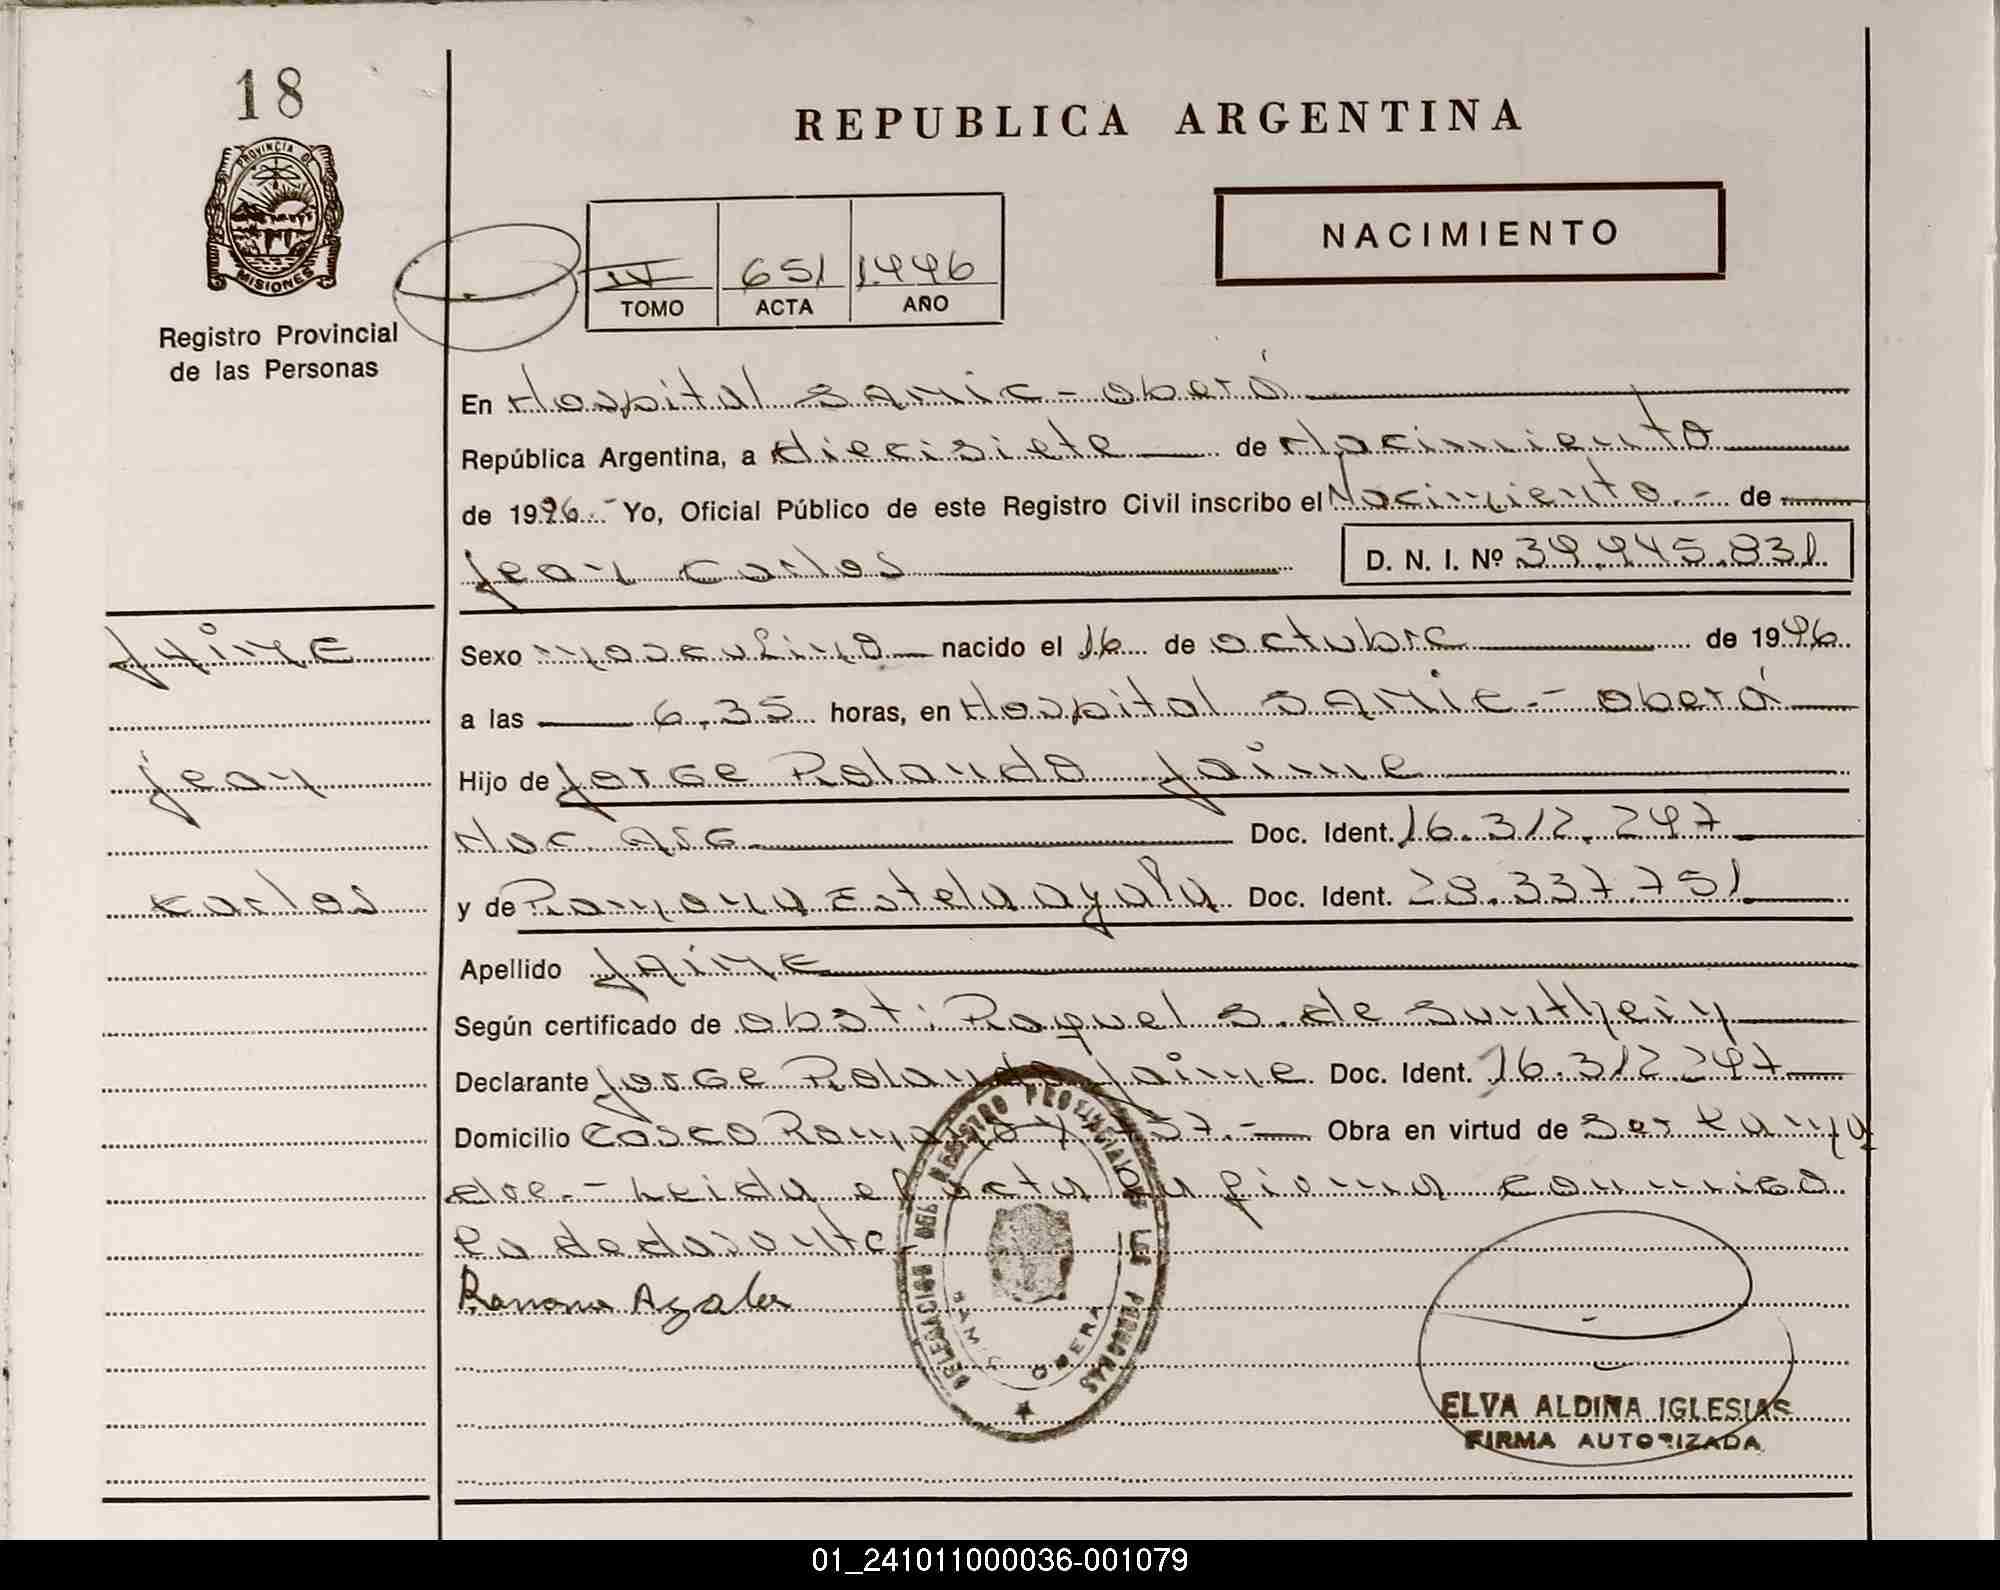 18
REPUBLICA ARGENTINA
PROVINCIA DE
MISIONES
Registro Provincial
de las Personas
NACIMIENTO
IV 651 1.996
TOMO ACTA AÑO
En Hospital SAMIC - oberá
República Argentina, a diecisiete de Nacimiento
de 1996.- Yo, Oficial Público de este Registro Civil inscribo el Nacimiento.- de
jean carlos D. N. I. Nº 39.945.831
JAIME
jean
carlos
Sexo masculino nacido el 16 de octubre de 1996
a las 6,35 horas, en Hospital SAMIC.- oberá
Hijo de jorGe Rolando jaime
Nac. ArG. Doc. Ident. 16.312.297
y de Ramona Estela ayala Doc. Ident. 28.337.751
Apellido JAIME
Según certificado de obst: Raquel S. de Sunthein
Declarante jorGe Rolando jaime Doc. Ident. 16.312.297
Domicilio Casco Obra en virtud de Ser la ma
dre.- Leida el acta la firma conmigo
la declarante-
Ramona Ayala
DELEGACION DEL REGISTRO PROVINCIAL DE LAS PERSONAS
SAMIC OBERA
ELVA ALDINA IGLESIAS
FIRMA AUTORIZADA
01_241011000036-001079